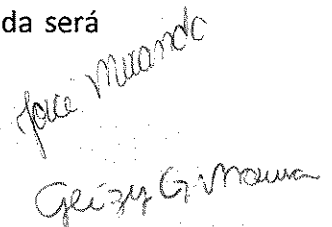 da será
Joice Miranda
Geizy G. Moura